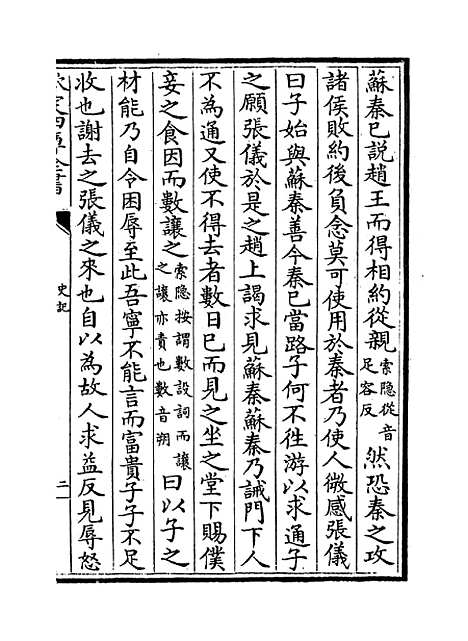 蘇秦已說趙王而得相約從親索隱從音足容反然恐秦之攻
諸侯敗約後負念莫可使用於秦者乃使人微感張儀
曰子始與蘇秦善今秦已當路子何不往游以求通子
之願張儀於是之趙上謁求見蘇秦蘇秦乃誡門下人
不為通又使不得去者數日已而見之坐之堂下賜僕
妾之食因而數讓之索隱按謂數設詞而讓之讓亦責也數音朔曰以子之
材能乃自令困辱至此吾寧不能言而富貴子子不足
收也謝去之張儀之來也自以為故人求益反見辱怒
欽定四庫全書
史記
二